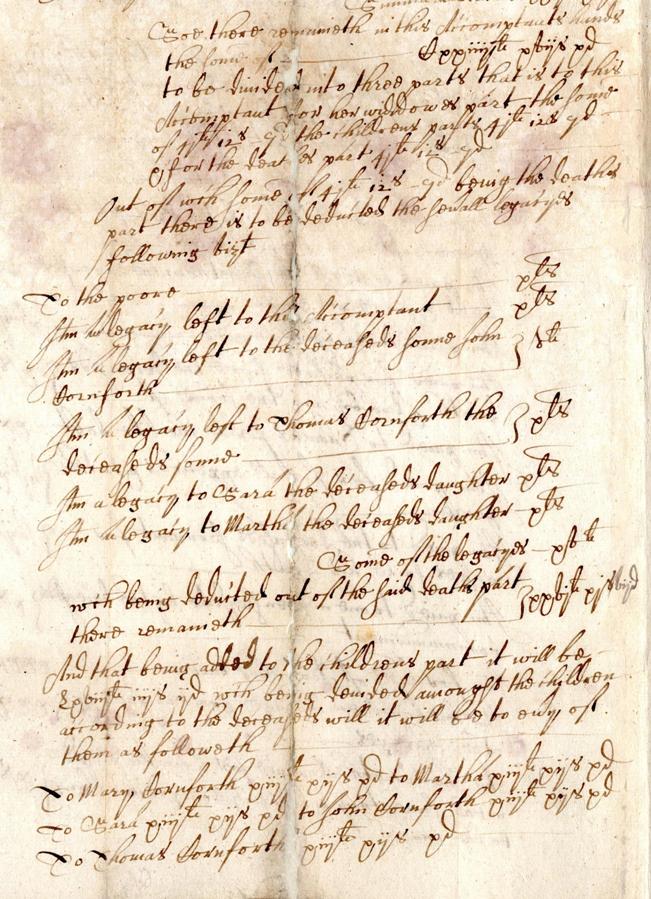 Soe there remaineth in this Accomptants hands
the some of Cxxiiijli xviijs xd
to be divided into three parts that is to this
Accomptant for her widdowes part the some
of 41li 12s 9d the childrens parts 41li 12s 9d
& for the deathes part 41li 12s 9d
Out of wch some of 41li 12s - 9d being the deathes
part there is to be deducted the severall legacyes
following vizt
To the poore xls
Itm a legacy left to this Accomptant xls
Itm a legacy left to the deceaseds sonne John } vli
Cornforth
Itm a legacy left to Thomas Cornforth the } xls
deceaseds sonne
Itm a legacy to Sara the deceaseds daughter xls
Itm a legacy to Martha the deceaseds daughter - xls
Some of the legacyes - xvli
wch being deducted out of the said deaths part } xxvjli xijs
there remaineth
And that being added to the childrens part it will be
Lxviijli iijs ijd wch being devided amongst the children
according to the deceaseds will it will be to every of
them as followeth
To Mary Cornforth xiijli xijs xd to Martha xiijli xijs xd
To Sara xiijli xijs xd to John Cornforth xiijli xijs xd
To Thomas Cornforth xiijli xijs xd